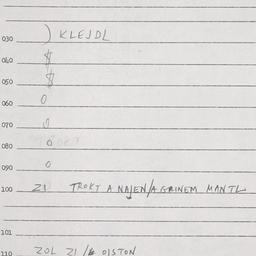 030 ) KLEJDL
040 $
050 $
060 0
070 0
080 0
090 0
100 ZI TROKT A NAJEM/A GRINEM MANTL
101
110 ZOL ZI / OISTON